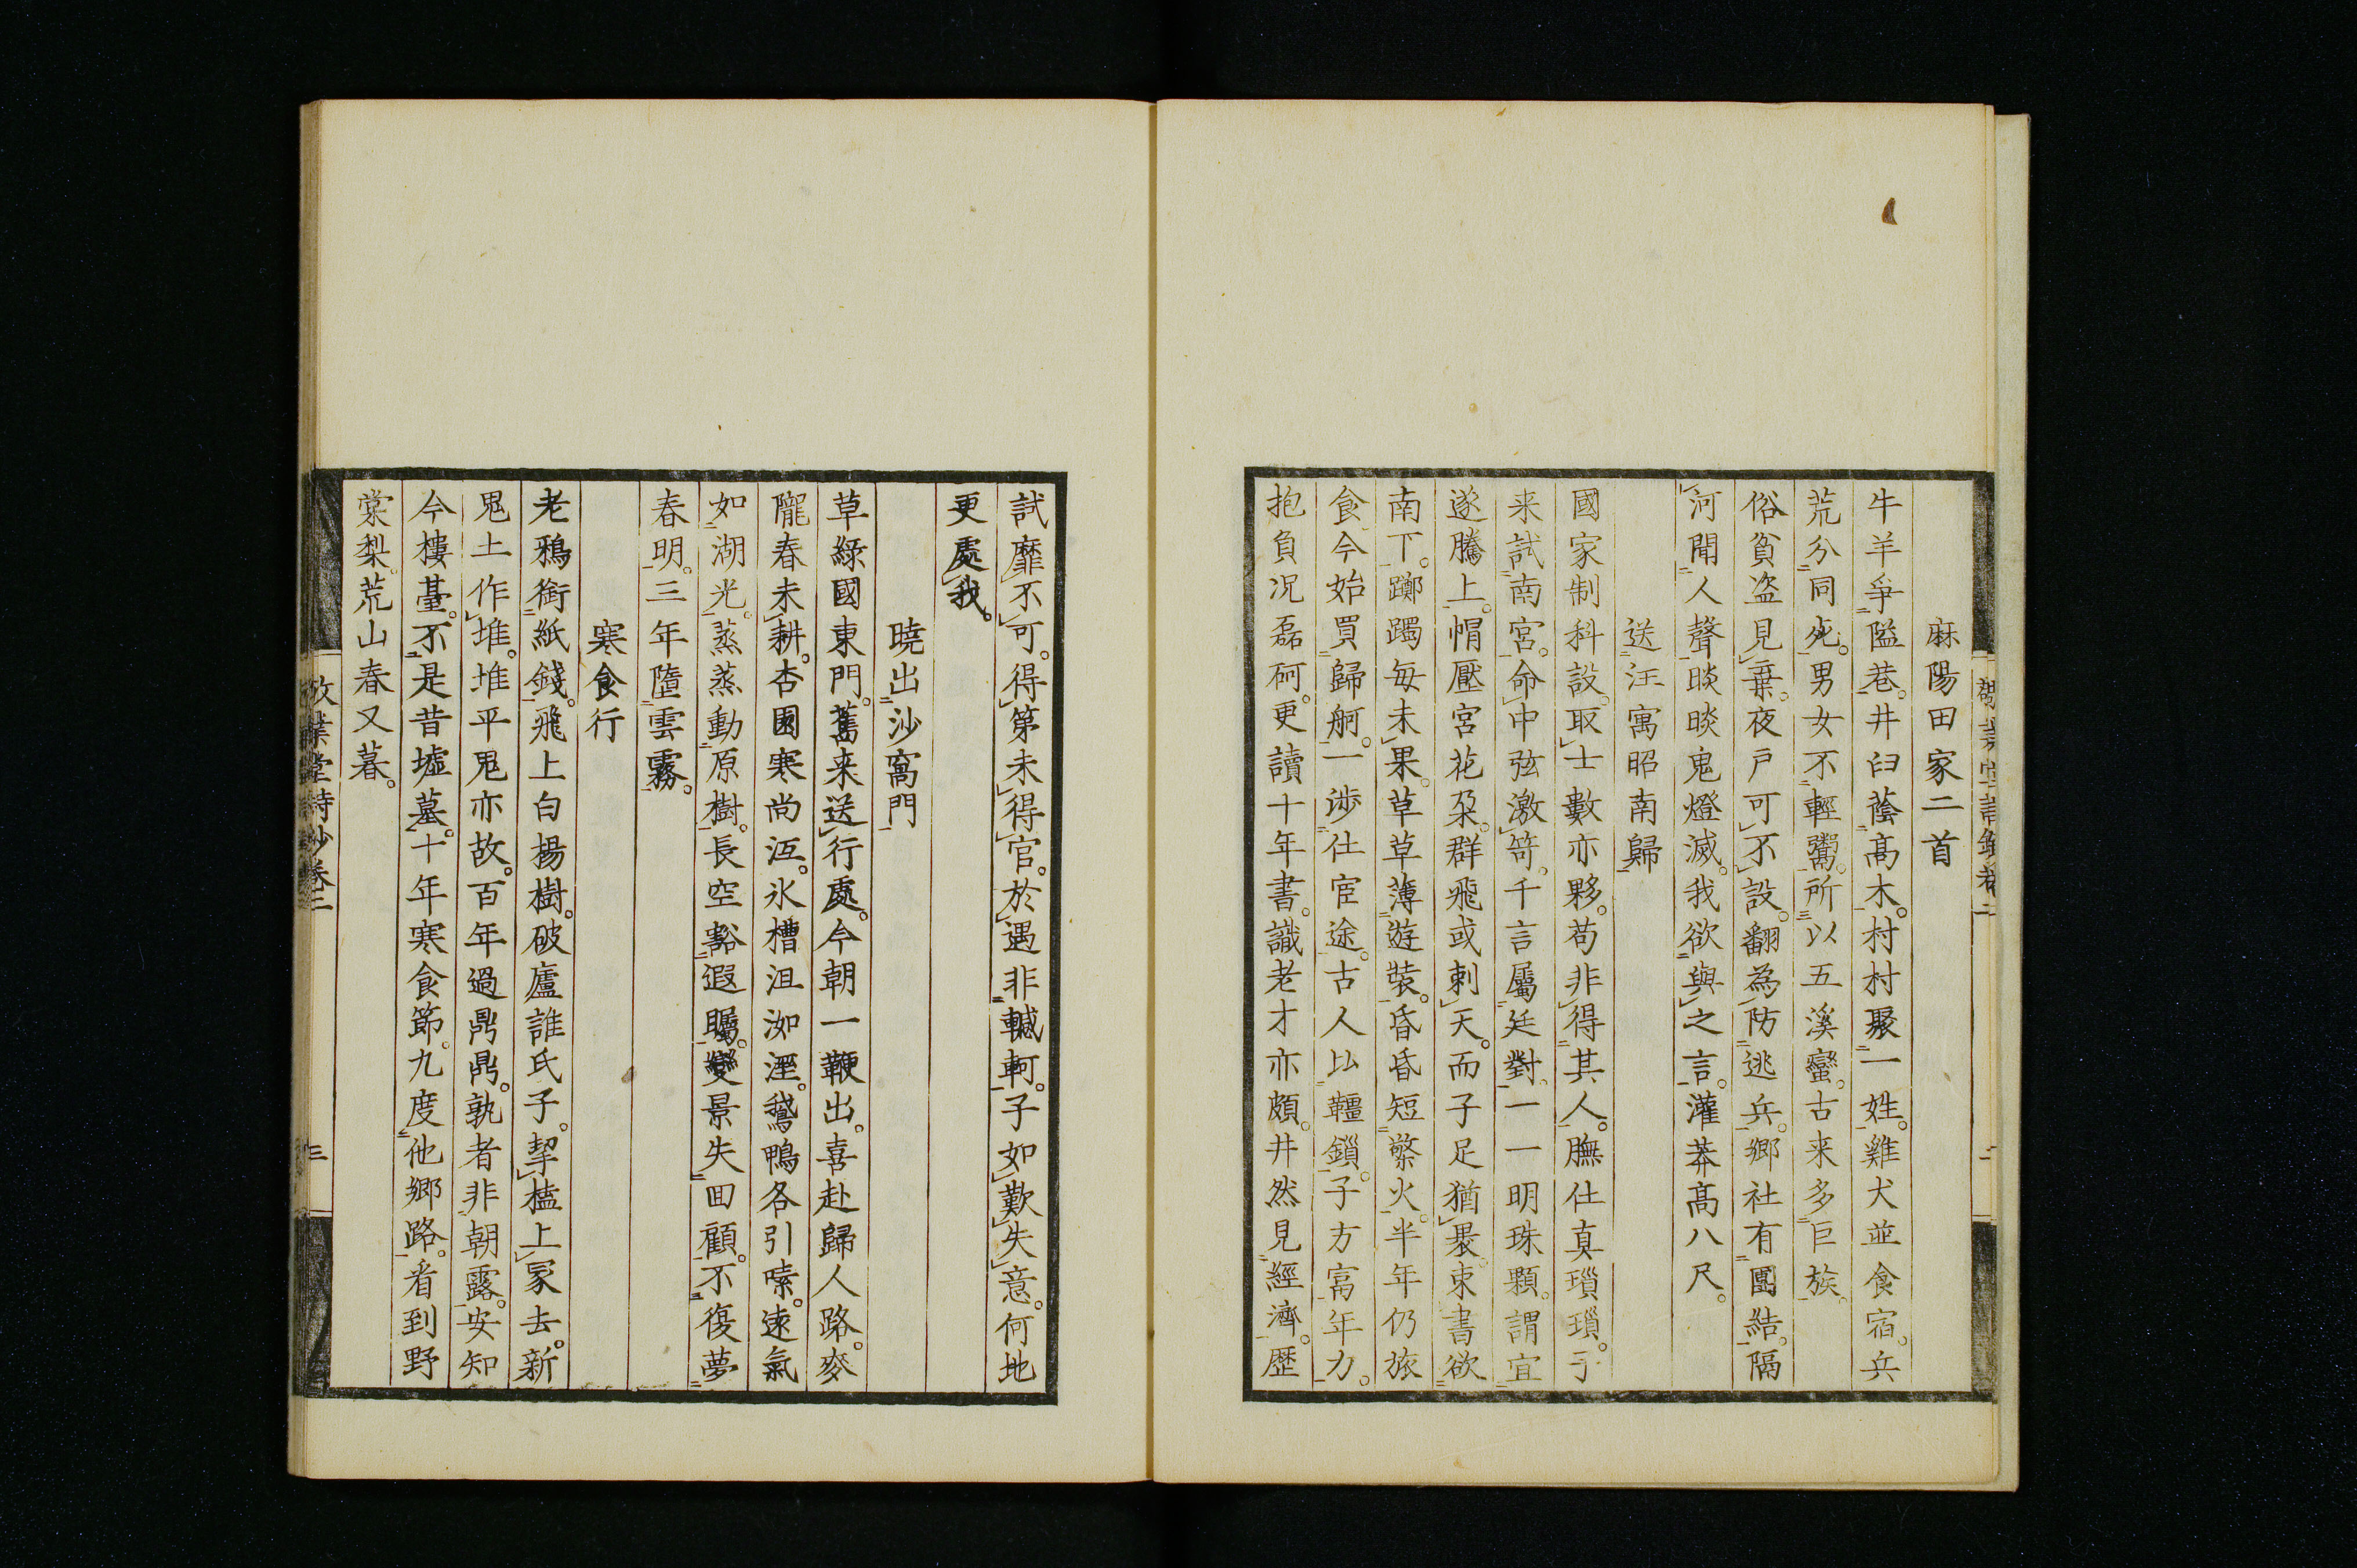 麻陽田家二首
牛羊爭隘巷。井臼蔭髙木。村村聚一姓。雞犬並食宿。兵
荒分同死。男女不輕鬻。所以五溪蠻。古来多巨族。
俗貧盗見棄。夜戸可不設。翻為防逃兵。郷社有團結。隔
河聞人聲。晱晱鬼燈滅。我欲與之言。灌莽髙八尺。
送汪寓昭南歸
國家制科設。取士數亦夥。苟非得其人。膴仕真瑣瑣。子
来試南宮。命中弦激笴。千言屬廷對。一一明珠顆。謂宜
遂騰上。帽壓宮花朶。群飛或刺天。而子足猶褁。束書欲
南下。躑躅毎未果。草草薄遊裝。昏昏短檠火。半年仍旅
食。今始買歸舸。一渉仕宦途。古人比韁鎖。子方富年力。
抱負况磊砢。更讀十年書。識老才亦頗。井然見經濟。歴
試靡不可。得第未得官。於遇非轗軻。子如歎失意。何地
更處我。
曉出沙窩門
草綠國東門。舊来送行處。今朝一鞭出。喜赴歸人路。麥
隴春未耕。杏園寒尚沍。氷槽沮洳溼。鵞鴨各引嗉。遠氣
如湖光。蒸蒸動原樹。長空豁遐矚。變景失回顧。不復夢
春明。三年墮雲霧。
寒食行
老鴉銜紙錢。飛上白楊樹。破廬誰氏子。挈榼上冢去。新
鬼土作堆。堆平鬼亦故。百年過鼎鼎。孰者非朝露。安知
今樓䑓。不是昔墟墓。十年寒食節。九度他郷路。看到野
棠梨。荒山春又暮。
敬業堂詩鈔卷二
三